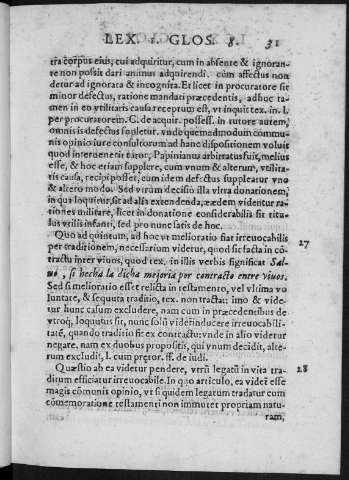 LEX. 1. GLOS. 8. 31
tra corpus eius, cui adquiritur, cum in absente & ignoran-
te non possit dari animus adquirendi. cùm affectus non
detur ad ignorata & incognita. Et licet in procuratore sit
minor defectus, ratione mandati præcedentis, adhuc ta-
men in eo vtilitatis causa receptum est, vt inquit tex. in l.
per procuratorem. C. de acquir. possess. in tutore autem,
omnis is defectus supletur. vnde quemadmodum commu-
nis opinio iure consultorum ad hanc dispositionem voluit
quod interuenerit tutor, Papinianus arbitratus fuit, melius
esse, & hoc etiam supplere, cum vnum & alterum, vtilita-
ris causa, recipi posset, cum idem defectus suppleatur vno
& altero modo. Sed vtrùm decisio illa vltra donationem,
in qua loquitur, sit ad aliàs extendenda, eædem videntur ra-
tiones militare, licet in donatione considerabilis sit titu-
lus vtilis infanti, sed pro nunc satis de hoc.
Quo ad quintum, ad hoc vt melioratio fiat irreuocabilis
27
per traditionem, necessarium videtur, quod sit facta in cõ-
tractu inter viuos, quod tex. in illis verbis significat Sal-
uo, si hecha la dicha mejoria por contracto entre viuos.
Sed si melioratio esset relicta in testamento, vel vltima vo
luntate, & sequuta traditio, tex. non tractat: imo & vide-
tur hunc casum excludere, nam cum in præcedentibus de
vtroq; loquutus sit, nunc solũ videf inducere irreuocabili-
tatẽ, quando traditio fit ex contractu: vnde in alio videtur
negare, nam ex duobus propositis, qui vnum decidit, alte-
rum excludit, l. cum prætor. ff. de iudi.
Quæstio ab ea videtur pendere, vtrũ legatũ in vita tra-
28
ditum efficiatur irreuocabile. In quo articulo, ea videf esse
magis cõmunis opinio, vt si quidem legatum tradatur cum
cõmemoratione testamenti non immutet propriam natu-
ram,